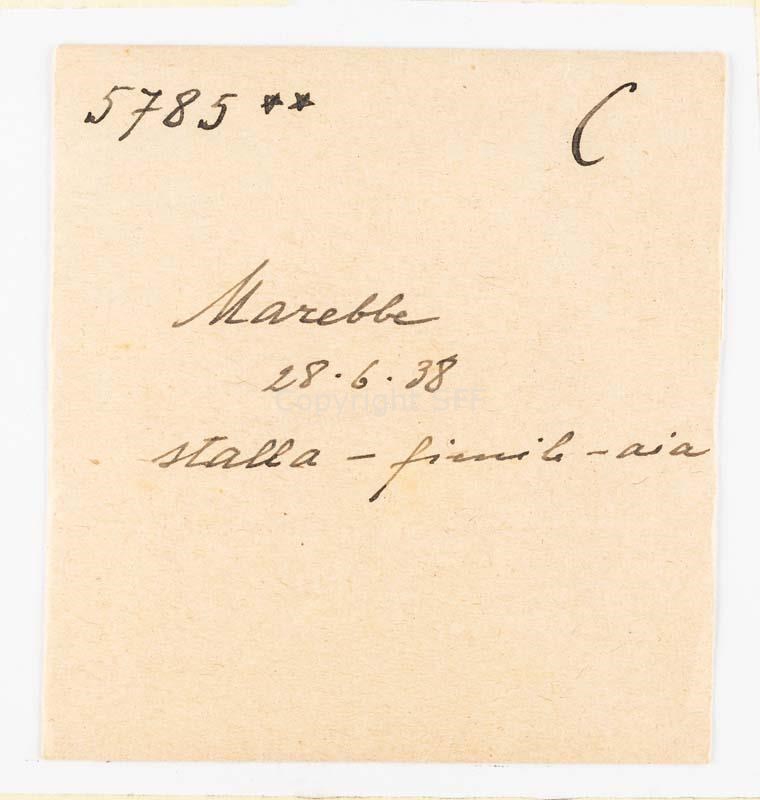 5785 ** C
Marebbe
28.6.38
Copyright SEF
stalla - fienile - aia